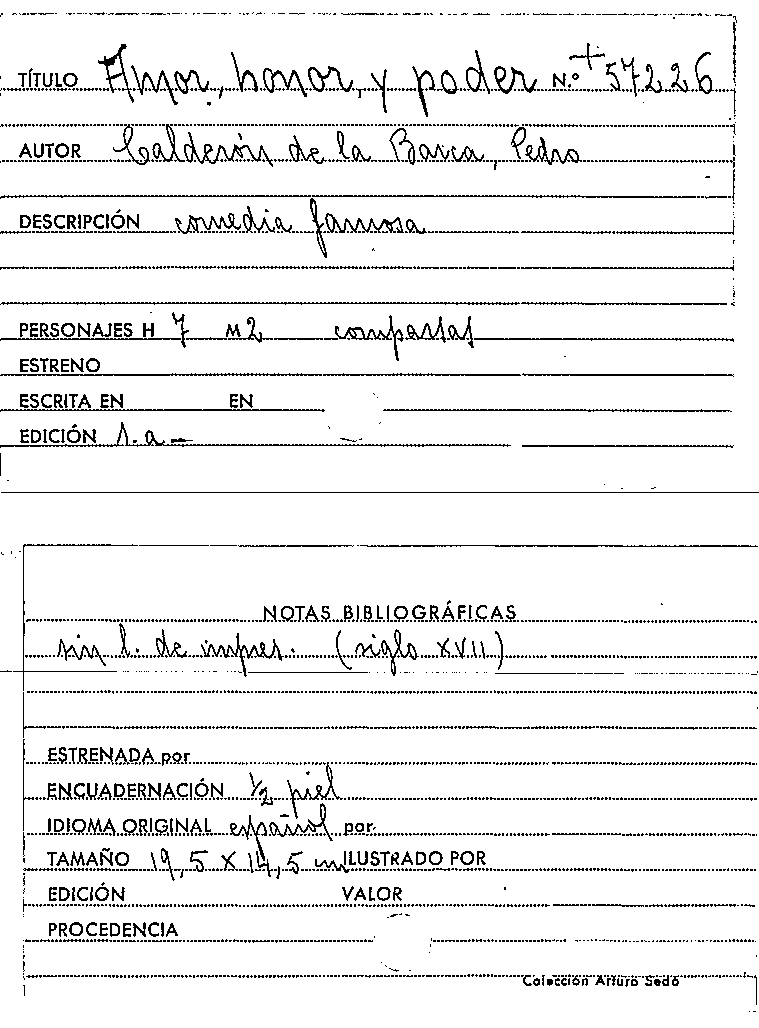 TÍTULO Amor, honor, y poder N.º + 57226
AUTOR Calderón de la Barca, Pedro
DESCRIPCIÓN comedia famosa
PERSONAJES H 7 M 2 comparsas
ESTRENO
ESCRITA EN EN
EDICIÓN s.a.-
NOTAS BIBLIOGRÁFICAS
sin l. de impres. (siglo XVII)
ESTRENADA por
ENCUADERNACIÓN ½ piel
IDIOMA ORIGINAL español por
TAMAÑO 19,5 X 14,5 cm ILUSTRADO POR
EDICIÓN VALOR
PROCEDENCIA
Colección Arturo Sedó